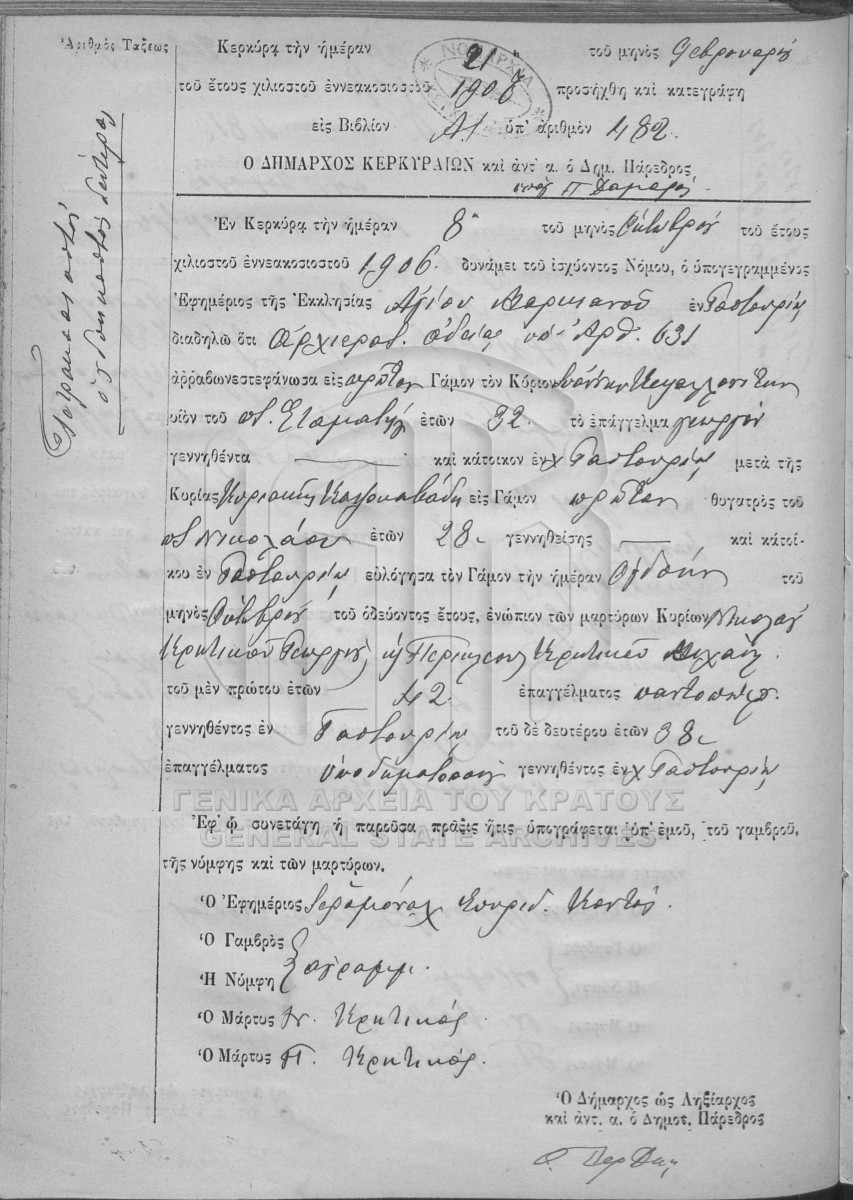 Ἀριθμὸς Τάξεως
Τετρακοσιοστὸς
ὀγδοηκοστὸς δεύτερος
Κερκύρα τὴν ἡμέραν 21 τοῦ μηνὸς Φεβρουαρίου
τοῦ ἔτους χιλιοστοῦ ἐννεακοσιοστοῦ 1907 προσήχθη καὶ κατεγράφη
εἰς Βιβλίον Α1 ὑπ' ἀριθμὸν 482.
Ο ΔΗΜΑΡΧΟΣ ΚΕΡΚΥΡΑΙΩΝ καὶ ἀντ' α. ὁ Δημ. Πάρεδρος
Ἐν Κερκύρᾳ τὴν ἡμέραν 8η τοῦ μηνὸς Ὀκτωβρίου τοῦ ἔτους
χιλιοστοῦ ἐννεακοσιοστοῦ 1906. δυνάμει τοῦ ἰσχύοντος Νόμου, ὁ ὑπογεγραμμένος
Ἐφημέριος τῆς Ἐκκλησίας Ἁγίου Μαρκιανοῦ ἐν Γαστουρίῳ
διαδηλῶ ὅτι Ἀρχιερατ. ἀδείας ὑπ' Ἀρθ. 631
ἀρραβωνεστεφάνωσα εἰς πρῶτον Γάμον τὸν Κύριον Ἰωάννην Κεφαλλονίτην
υἱὸν τοῦ ποτ. Σταμάτη ἐτῶν 32. τὸ ἐπάγγελμα γεωργὸν
γεννηθέντα καὶ κάτοικον ἐν χ Γαστουρίῳ μετὰ τῆς
Κυρίας Κυριακῆς εἰς Γάμον πρῶτον θυγατρὸς τοῦ
ποτ Νικολάου ἐτῶν 28 γεννηθείσης καὶ κατοί-
κου ἐν Γαστουρίῳ εὐλόγησα τὸν Γάμον τὴν ἡμέραν Ὀγδόην τοῦ
μηνὸς Ὀκτωβρίου τοῦ ὁδεύοντος ἔτους, ἐνώπιον τῶν μαρτύρων Κυρίων Νικολάου
Κρητικοῦ Γεωργίου καὶ Περικλέους Κρητικοῦ Μιχαὴλ
τοῦ μὲν πρώτου ἐτῶν 42 ἐπαγγέλματος παντοπώλ.
γεννηθέντος ἐν Γαστουρίῳ τοῦ δὲ δευτέρου ἐτῶν 38
ἐπαγγέλματος ὑποδηματοποιοῦ γεννηθέντος ἐν χ Γαστουρίῳ
ΓΕΝΙΚΑ ΑΡΧΕΙΑ ΤΟΥ ΚΡΑΤΟΥΣ
Ἐφ' ᾧ συνετάγη ἡ παροῦσα πρᾶξις ἥτις ὑπογράφεται ὑπ' ἐμοῦ, τοῦ γαμβροῦ,
GENERAL STATE ARCHIVES
τῆς νύμφης καὶ τῶν μαρτύρων.
Ὁ Ἐφημέριος Ἱερομόναχ Σπυρίδ. Κοντός.
Ὁ Γαμβρὸς
ἀγράμμ.
Ἡ Νύμφη
Ὁ Μάρτυς Ν. Κρητικός.
Ὁ Μάρτυς Π. Κρητικός.
Ὁ Δήμαρχος ὡς Ληξίαρχος
καὶ ἀντ. α. ὁ Δημοτ. Πάρεδρος